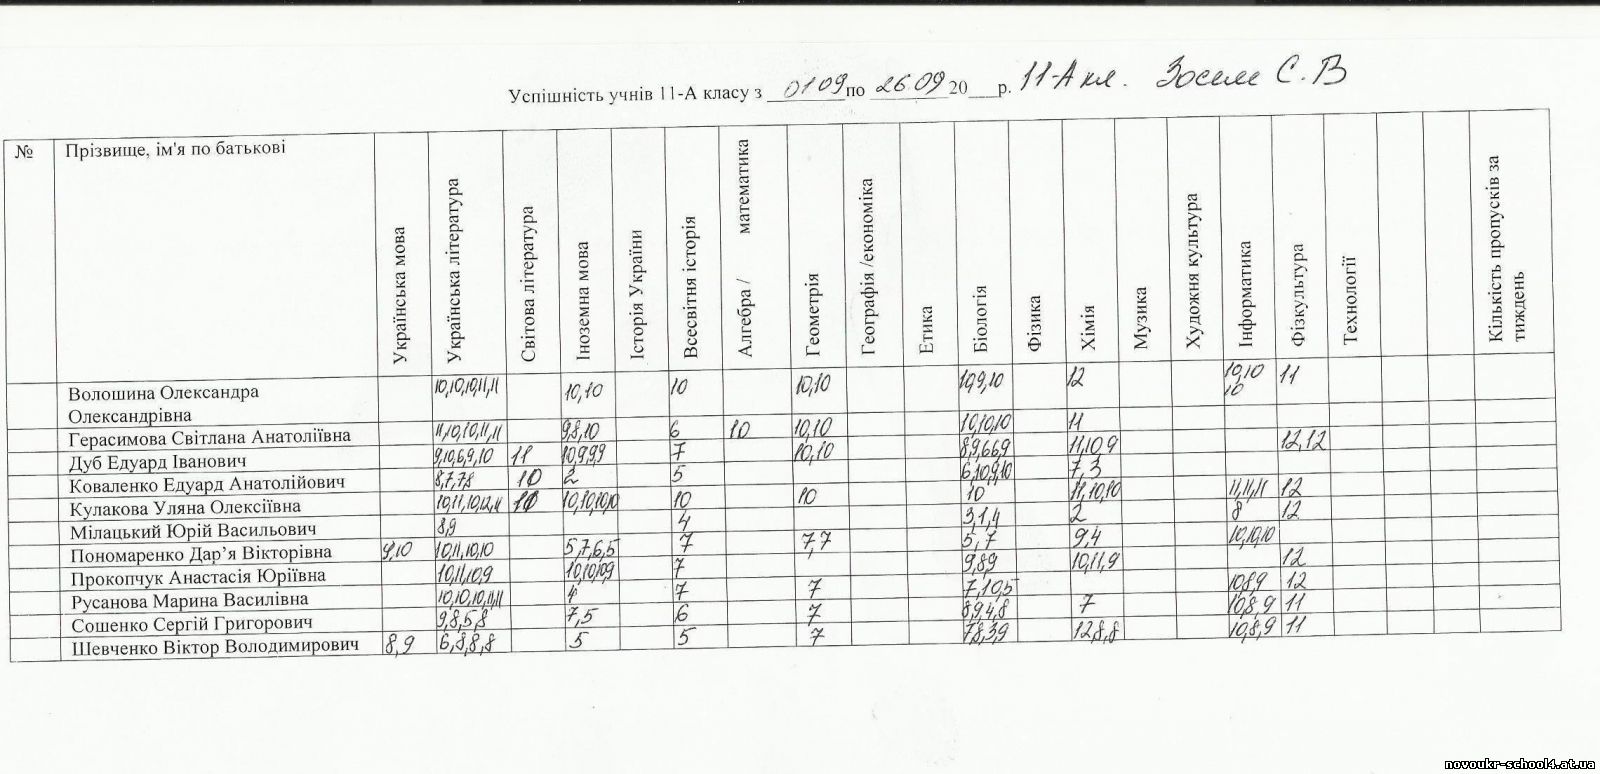 Успішність учнів 11-А класу з 01 09 по 26.09 20___р. 11-А кл. Зосим С. В
№ Прізвище, ім'я по батькові Українська мова Українська література Світова література Іноземна мова Історія України Всесвітня історія Алгебра / математика Геометрія Географія /економіка Етика Біологія Фізика Хімія Музика Художня культура Інформатика Фізкультура Технології Кількість пропусків за тиждень
Волошина Олександра Олександрівна 10,10,10,11,11 10,10 10 10,10 10,9,10 12 10,10 10 11
Герасимова Світлана Анатоліївна 11,10,10,11,11 9,8,10 6 10 10,10 10,10,10 11
Дуб Едуард Іванович 9,10,6,9,10 11 10,9,9,9 7 10,10 8,9,6,6,9 11,10,9 12,12
Коваленко Едуард Анатолійович 8,7,7,8 10 2 5 6,10,9,10 7,3
Кулакова Уляна Олексіївна 10,11,10,12,11 10 10,10,10,10 10 10 10 11,10,10 11,11,11 12
Мілацький Юрій Васильович 8,9 4 3,1,4 2 8 12
Пономаренко Дар’я Вікторівна 9,10 10,11,10,10 5,7,6,5 7 7,7 5,7 9,4 10,10,10
Прокопчук Анастасія Юріївна 10,11,10,9 10,10,10,9 7 9,8,9 10,11,9 12
Русанова Марина Василівна 10,10,10,11,11 4 7 7 7,10,5 10,8,9 12
Сошенко Сергій Григорович 9,8,5,8 7,5 6 7 8,9,4,8 7 10,8,9 11
Шевченко Віктор Володимирович 8,9 6,8,8,8 5 5 7 7,8,3,9 12,8,8 10,8,9 11
novoukr-school4.at.ua